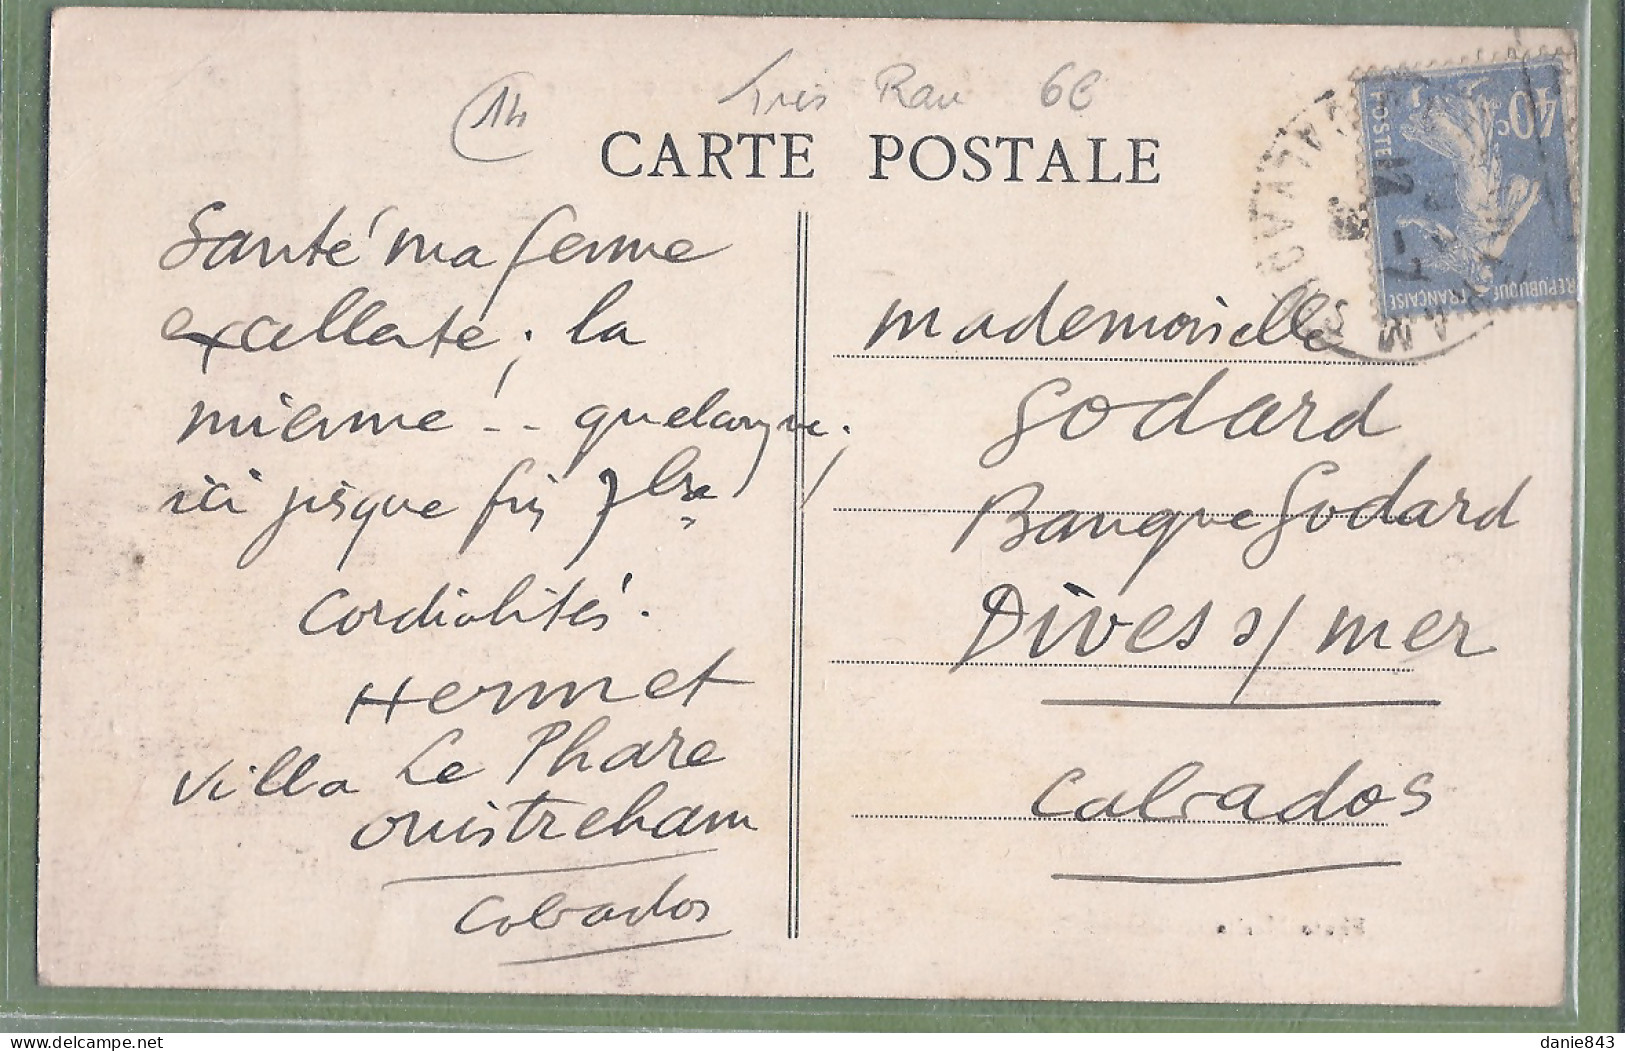 14
très Rare 6E
CARTE POSTALE
Santé ma femme
excellente ; la
mienne ! -- quelconque ;
ici jusque fin 7bre
Cordialités.
Hermet
Villa Le Phare
Ouistreham
Calvados
Mademoiselle
Godard
Banque Godard
Dives s/ mer
Calvados
40c
POSTES
REPUBLIQUE FRANÇAISE
CALVADOS
12 -7
delcampe.net
danie843